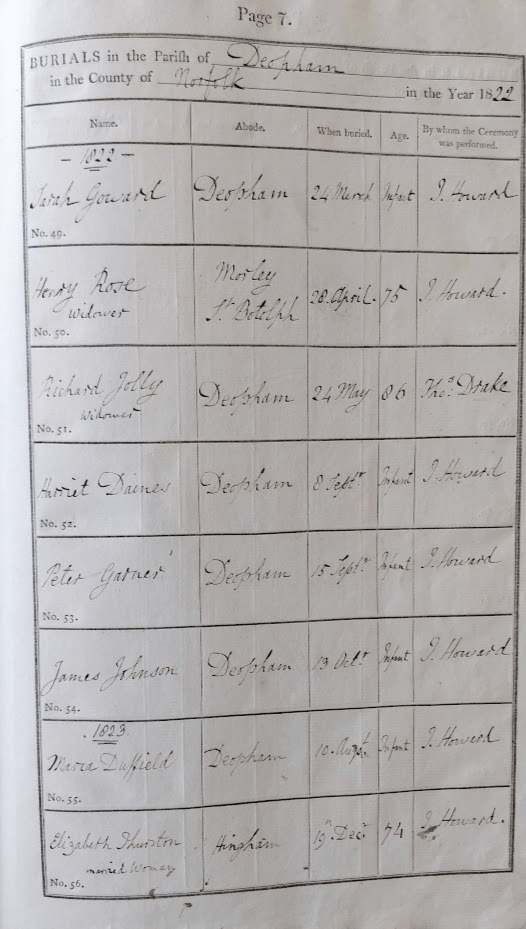 Page 7.
BURIALS in the Parish of Deopham
in the County of Norfolk in the Year 1822
Name. Abode. When buried. Age. By whom the Ceremony was performed.
— 1822 —
Sarah Goward Deopham 24 March Infant J. Howard
No. 49.
Henry Rose Morley 28. April. 75 J. Howard.
Widower St. Botolph
No. 50.
Richard Jolly Deopham 24 May 86 Thos. Drake
Widower
No. 51.
Harriet Daines Deopham 8 Septr Infant J. Howard
No. 52.
Peter Garner Deopham 15 Septr Infant J. Howard
No. 53.
James Johnson Deopham 13 Octr Infant J. Howard
No. 54.
1823.
Maria Duffield Deopham 10. Augst Infant J. Howard
No. 55.
Elizabeth Thurston Hingham 19 Decr 74 J. Howard.
married Woman
No. 56.